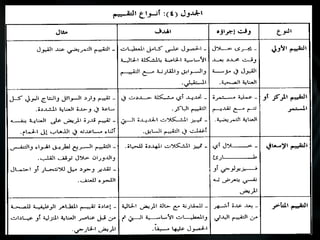 الجدول (٤): أنواع التقييم
النوع
وقت إجراؤه
الهدف
مثال
التقييم الأولي
يجرى خلال
محدد بعد
القبول في مؤسسة
العناية الصحية.
-الحصول على كامل المعطيات
الأساسية الخاصة بالمشكلة الحالية
والسوابق والمقارنة مع التقييم
المستقبلي.
التقييم التمريضي عند القبول
التقييم المركز أو
المستمر
عملية مستمرة
تتم مع تقديم
العناية التمريضية.
- تحديد أي مشكلة حددت في
التقييم الباكر.
- تمييز المشكلات الجديدة التي
أغفلت في التقييم السابق.
- تقييم وارد السوائل والنتاج البولي كل
ساعة في وحدة العناية المشددة.
- تقييم قدرة المريض على العناية بنفسه
أثناء مساعدته في الذهاب إلى الحمام.
التقييم الإسعافي
خلال أي
طارئ
فيزيولوجي أو
نفسي يتعرض له
المريض
تمييز المشكلات المهددة للحياة.
- التقييم السريع لطريق الهواء والتنفس
والدوران خلال توقف القلب.
- تقدير وجود ميل للانتحار أو احتمال
اللجوء للعنف.
التقييم المتأخر
بعد عدة أشهر
من التقييم البدئي
للمقارنة مع حالة المريض الحالية
والمعطيات الأساسية التي تم
الحصول عليها مسبقاً.
- إعادة تقييم المظاهر الوظيفية للصحة
من قبل عناصر العناية المنزلية أو عيادات
المريض الخارجي.